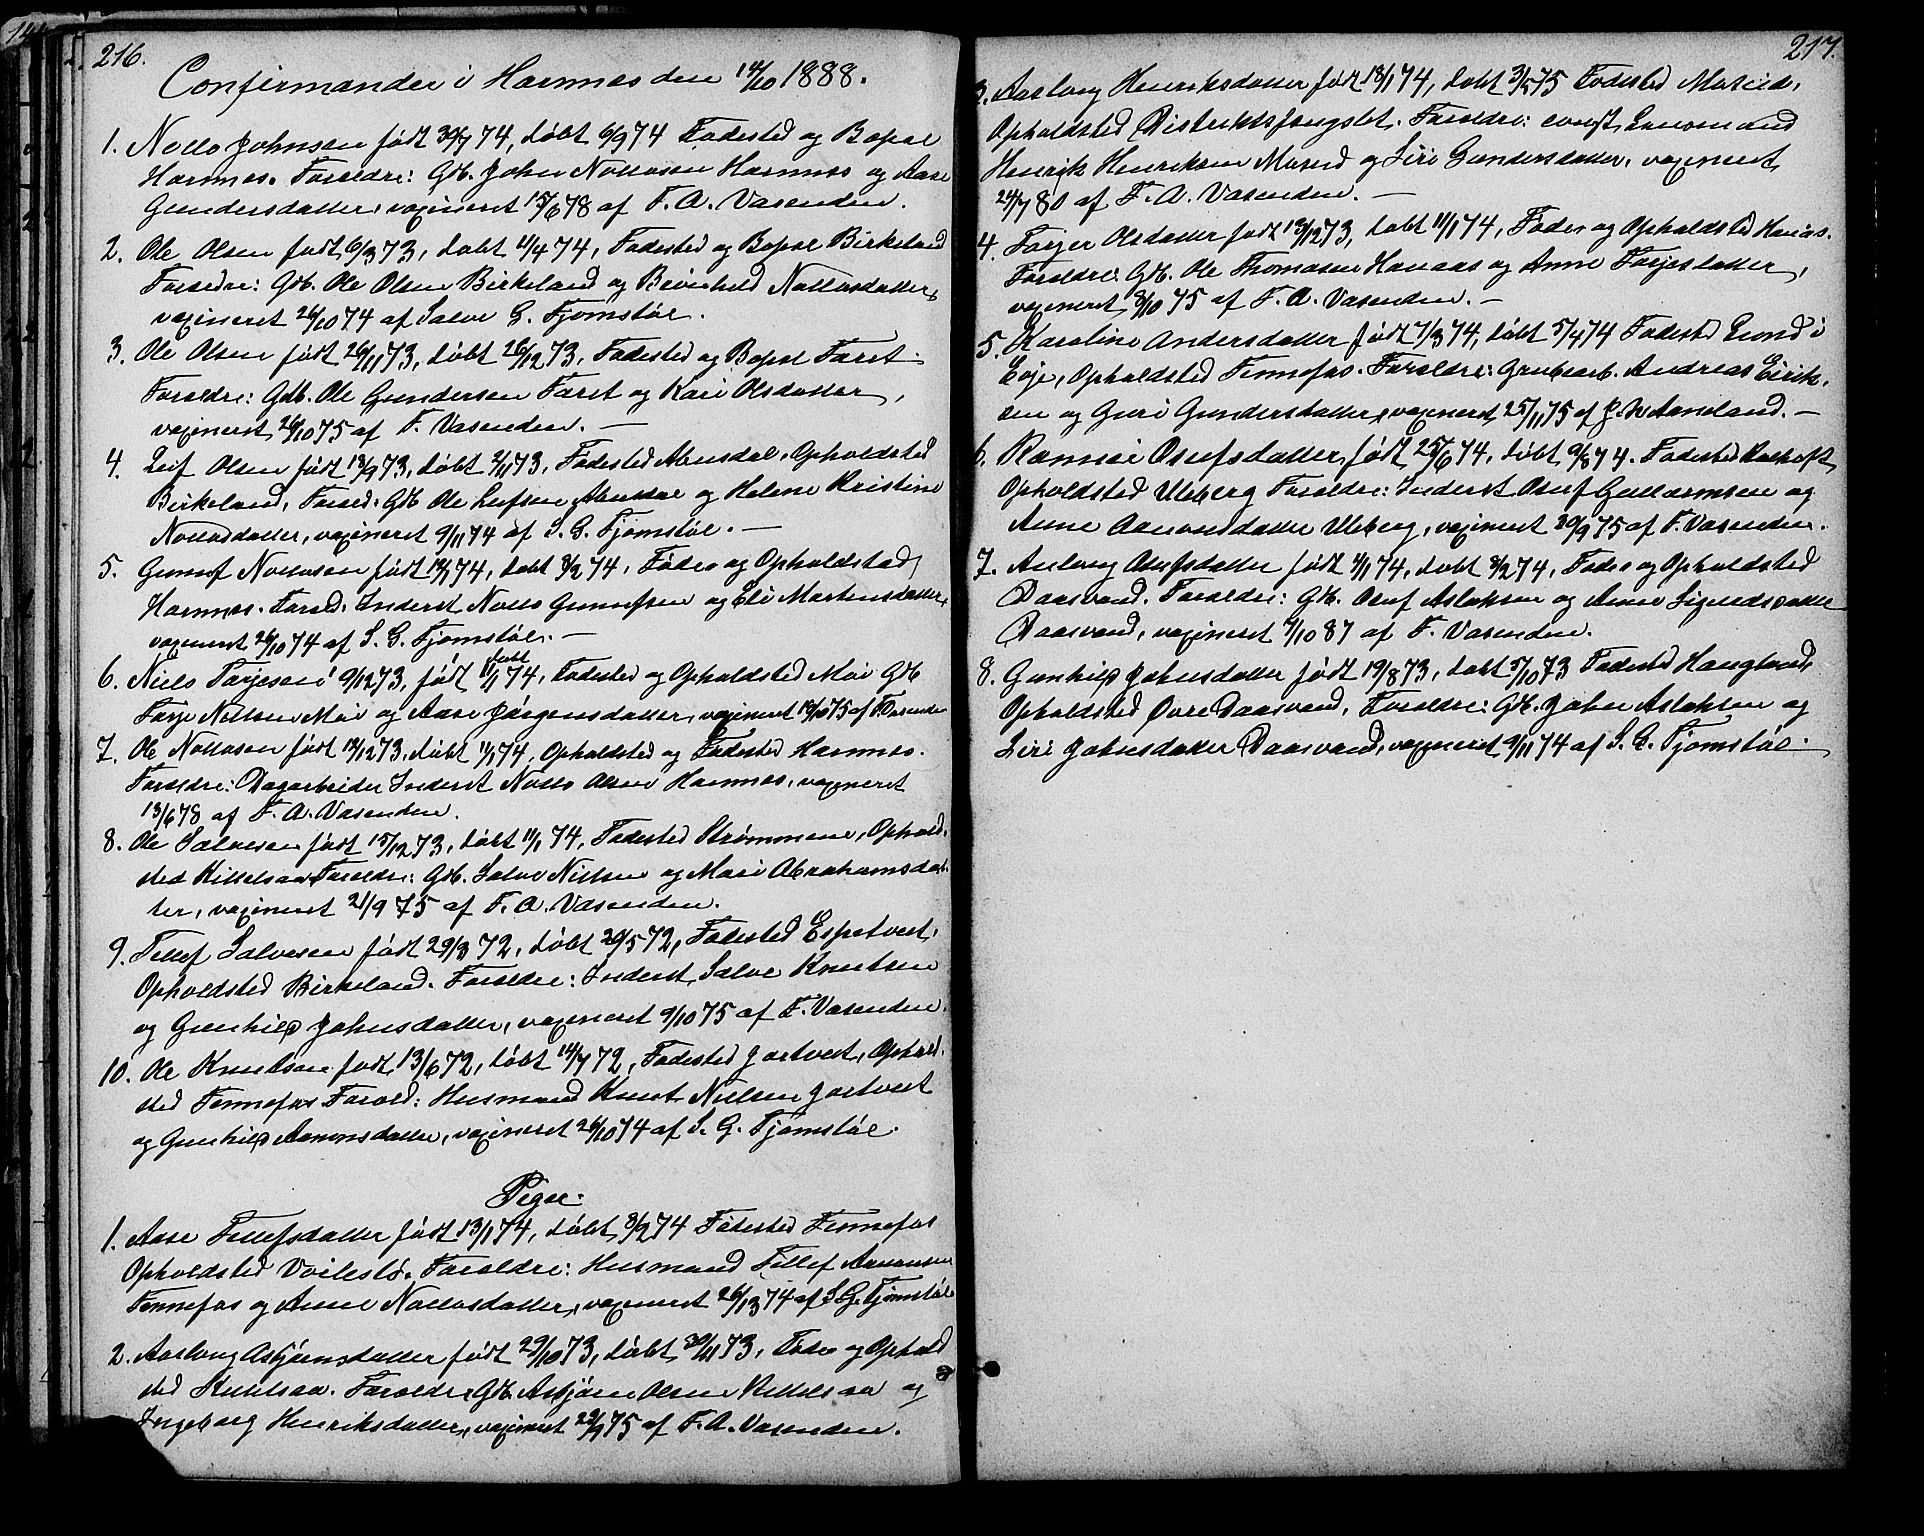 216.
Confirmander i Hornnes den 14/10 1888.
1. Nollo Johnsen født 30/7 74, døbt 6/9 74 Fødested og Bopæl
Hornnes. Forældre: Gdb. John Nollosen Hornnes og Aase
Gundersdatter, vaxineret 15/6 78 af F. A. Vasenden.
2. Ole Olsen født 6/3 73, døbt 11/4 74, Fødested og Bopæl Birkeland
Forældre: Gdb. Ole Olsen Birkeland og Nollosdatter,
vaxineret 26/10 74 af Salve G. Fjomstøl.
3. Ole Olsen født 26/11 73, døbt 26/12 73, Fødested og Bopæl Faret.
Forældre: Gdb. Ole Gundersen Faret og Kari Olsdatter,
vaxineret 26/10 75 af F. Vasenden. —
4. Leif Olsen født 13/9 73, døbt 2/11 73, Fødested Abusdal, Opholdsted
Birkeland, Foræld: Gdb Ole Leifsen Abusdal og Helene Kristine
Nollosdatter, vaxineret 9/11 74 af S. G. Fjomstøl. —
5. Gunuf Nollosen født 12/1 74, døbt 8/2 74, Føde og Opholdsted
Hornnes. Foræld. Inderst Nollo Gunufsen og Eli Mortensdatter,
vaxineret 26/10 74 af S. G. Fjomstøl. —
6. Niels Tarjesen 9/12 73, født døbt 11/1 74, Fødested og Opholdsted Moi Gdb
Tarje Nielsen Moi og Aase Jørgensdatter, vaxineret 10/10 75 af F. Vasenden
7. Ole Nollosen født 12/12 73, døbt 11/1 74, Opholdsted og Fødested Hornnes.
Forældre: Dagarbeider Inderst Nollo Olsen Hornnes, vaxineret
13/6 78 af F. A. Vasenden.
8. Ole Salvesen født 15/12 73, døbt 11/1 74, Fødested Strømmene, Ophold-
sted Kittelsaa Forældre: Gdb. Salve Nielsen og Mari Abrahamsdat-
ter, vaxineret 21/9 75 af F. A. Vasenden.
9. Tellef Salvesen født 29/3 72, døbt 20/5 72, Fødested Espetveit,
Opholdsted Birkeland. Forældre: Inderst Salve Knutsen
og Gunhild Johnsdatter, vaxineret 9/10 75 af F. Vasenden.
10. Ole Knutsen født 13/6 72, døbt 14/7 72, Fødested Jortveit, Ophold-
sted Fennefos Foræld: Husmand Knut Nielsen Jortveit
og Gunhild Aanonsdatter, vaxineret 26/10 74 af S. G. Fjomstøl.
Piger.
1. Aase Tellefsdatter født 13/1 74, døbt 8/2 74 Fødested Fennefos
Opholdsted Forældre: Husmand Tellef Aanonsen
Fennefos og Anne Nollosdatter, vaxineret 26/13 74 af S. G. Fjomstøl
2. Aaslaug Asbjørnsdatter født 29/10 73, døbt 30/11 73, Føde og Ophold
sted Kittelsaa. Forældre Gdb. Asbjørn Olsen Kittelsaa og
Ingeborg Henriksdatter, vaxineret 22/9 75 af F. A. Vasenden.
217.
3. Aaslaug Henriksdatter født 18/1 74, døbt 3/5 75 Fødested Moseid,
Opholdsted Distriktsfængslet. Forældre: const. Lensmand
Henrik Henriksen Moseid og Siri Gundersdatter, vaxineret
24/7 80 af F. A. Vasenden. —
4. Torjer Olsdatter født 13/12 73, døbt 11/1 74, Føde og Opholdsted Honaas.
Forældre: Gdb. Ole Thomasen Honaas og Anne Torjesdatter,
vaxineret 3/10 75 af F. A. Vasenden. —
5. Karoline Andersdatter født 7/3 74, døbt 5/4 74 Fødested i
Evje, Opholdsted Fennefos. Forældre: Grubearb. Andreas Eirik-
sen og Guri Gundersdatter, vaxineret 25/11 75 af
6. Osufsdatter født 25/6 74, døbt 9/8 74. Fødested
Opholdsted Uleberg Forældre: Inderst Osuf Guttormsen og
Anne Aanonsdatter Uleberg, vaxineret 20/9 75 af F. Vasenden.
7. Aslaug Osufsdatter født 4/1 74, døbt 8/2 74, Føde og Opholdsted
Daasvand. Forældre: Gdb. Osuf Aslaksen og Anne Sigurdsdatter
Daasvand, vaxineret 9/10 87 af F. Vasenden.
8. Gunhild Johnsdatter født 19/8 73, døbt 5/10 73 Fødested Haugland,
Opholdsted Øvre Daasvand, Forældre: Gdb. John Aslaksen og
Siri Johnsdatter Daasvand, vaxineret 9/11 74 af S. G. Fjomstøl.